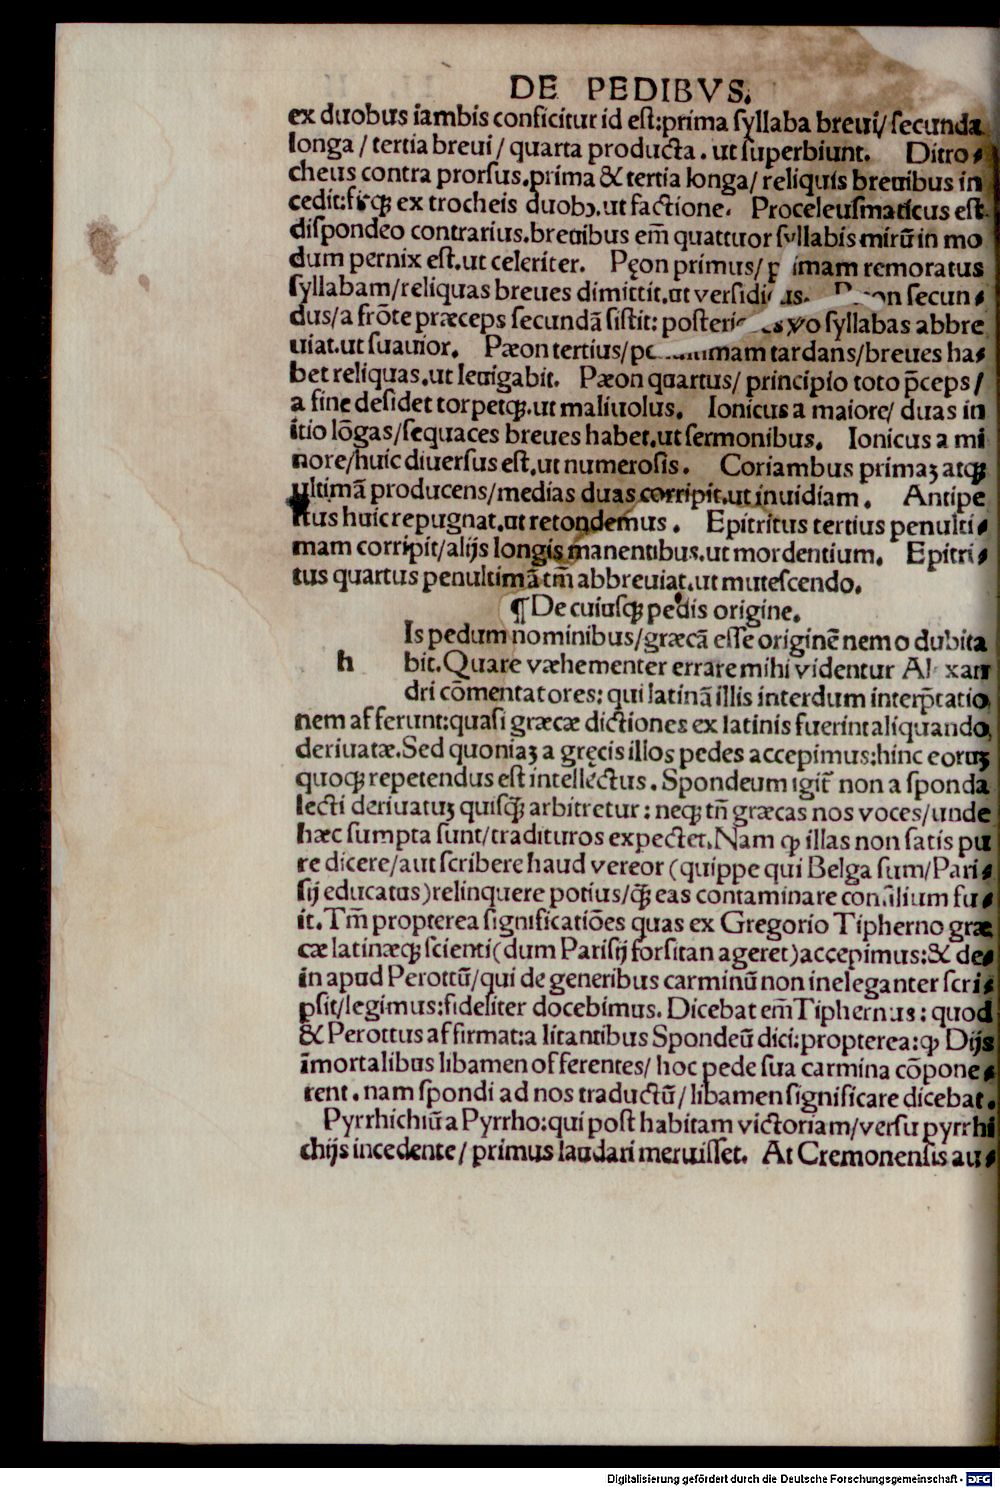 DE PEDIBVS.
ex duobus iambis conficitur id eſt:prima ſyllaba breui/ ſecunda
longa / tertia breui / quarta producta . ut ſuperbiunt. Ditro⸗
cheus contra prorſus.prima & tertia longa/ reliquis breuibus in
cedit:fitꝗ ex trocheis duobꝰ.ut factione. Proceleuſmaticus eſt
diſpondeo contrarius.breuibus em̄ quattuor ſyllabis mirū in mo
dum pernix eſt.ut celeriter. Pęon primus/ imam remoratus
ſyllabam/reliquas breues dimittit.ut ſecun⸗
dus/a frōte præceps ſecundā ſiſtit: ſyllabas abbre
uiat.ut ſuauior. Pæon tertius/ tardans/breues ha⸗
bet reliquas.ut leuigabit. Pæon quartus/ principio toto p̄ceps /
a fine deſidet torpetꝗ.ut maliuolus. Ionicus a maiore/ duas in
itio lōgas/ſequaces breues habet.ut ſermonibus. Ionicus a mi
nore/huic diuerſus eſt.ut numeroſis . Coriambus primaꝫ atꝗ
ultimā producens/medias duas corripit.ut inuidiam . Antipe
ſtus huic repugnat.ut retondemus . Epitritus tertius penulti⸗
mam corripit/alijs longis manentibus.ut mordentium. Epitri⸗
tus quartus penultimā tm̄ abbreuiat.ut muteſcendo.
¶ De cuiuſꝗ pedis origine.
Is pedum nominibus/græcā eſſe originē nemo dubita
h bit.Quare væhementer errare mihi videntur Al xan
dri cōmentatores: qui latinā illis interdum interp̄tatio
nem afferunt:quaſi græcæ dictiones ex latinis fuerint aliquando
deriuatæ.Sed quoniaꝫ a gręcis illos pedes accepimus:hinc eoruꝫ
quoꝗ repetendus eſt intellectus . Spondeum igit̄ non a ſponda
lecti deriuatuꝫ quiſꝗ̄ arbitretur : neꝗ tn̄ græcas nos voces/unde
hæc ſumpta ſunt/tradituros expectet.Nam ꝙ illas non ſatis pu
re dicere/aut ſcribere haud vereor (quippe qui Belga ſum/Pari⸗
ſij educatus)relinquere potius/ꝗ̄ eas contaminare conſilium fu⸗
it. Tm̄ propterea ſignificatiōes quas ex Gregorio Tipherno græ
cæ latinæꝗ ſcienti(dum Pariſij forſitan ageret)accepimus:& de⸗
in apud Perottū/qui de generibus carminū non ineleganter ſcri⸗
pſit/legimus:fideliter docebimus. Dicebat em̄ Tiphernus : quod
& Perottus affirmat:a litantibus Spondeū dici:propterea:ꝙ Dijs
īmortalibus libamen offerentes/ hoc pede ſua carmina cōpone⸗
rent . nam ſpondi ad nos traductū/ libamen ſignificare dicebat.
Pyrrhichiū a Pyrrho:qui poſt habitam victoriam/verſu pyrrhi
chijs incedente/ primus laudari meruiſſet. At Cremonenſis au⸗
Digitalisierung gefördert durch die Deutsche Forschungsgemeinschaft - DFG